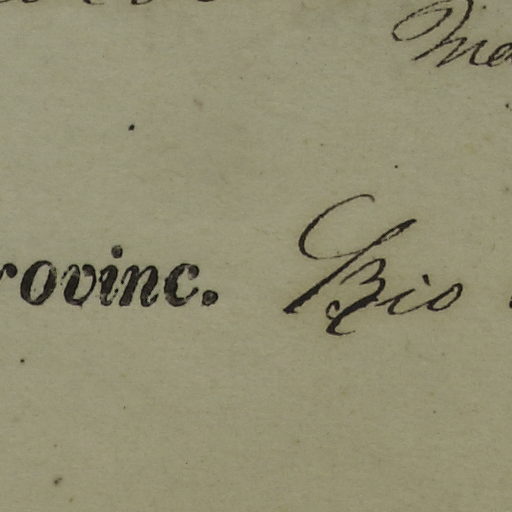 Ma
rovinc. Bio